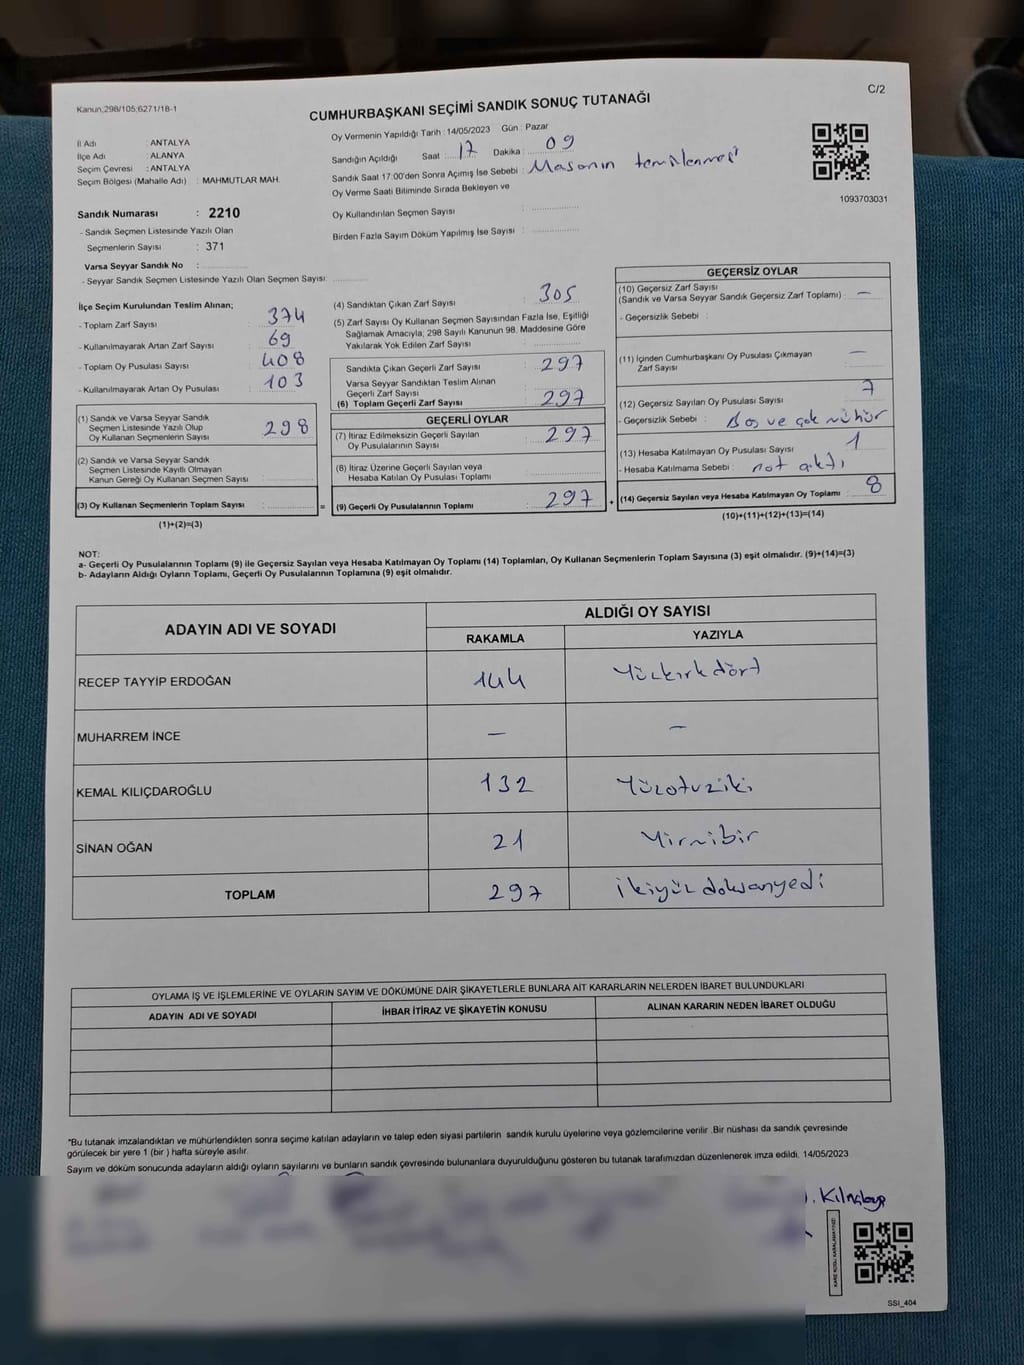 Kanun,298/105,6271/18-1
C/2
CUMHURBAŞKANI SEÇİMİ SANDIK SONUÇ TUTANAĞI
İl Adı : ANTALYA
İlçe Adı : ALANYA
Seçim Çevresi : ANTALYA
Seçim Bölgesi (Mahalle Adı) : MAHMUTLAR MAH.
Sandık Numarası : 2210
- Sandık Seçmen Listesinde Yazılı Olan
Seçmenlerin Sayısı : 371
Varsa Seyyar Sandık No :
- Seyyar Sandık Seçmen Listesinde Yazılı Olan Seçmen Sayısı:
Oy Vermenin Yapıldığı Tarih : 14/05/2023 Gün : Pazar
Sandığın Açıldığı Saat : 17 Dakika : 09
Sandık Saat 17:00'den Sonra Açımış İse Sebebi : Masanın temizlenmesi
Oy Verme Saati Bitiminde Sırada Bekleyen ve
Oy Kullandırılan Seçmen Sayısı :
Birden Fazla Sayım Döküm Yapılmış İse Sayısı :
1093703031
İlçe Seçim Kurulundan Teslim Alınan;
- Toplam Zarf Sayısı : 374
- Kullanılmayarak Artan Zarf Sayısı : 69
- Toplam Oy Pusulası Sayısı : 408
- Kullanılmayarak Artan Oy Pusulası : 103
(1) Sandık ve Varsa Seyyar Sandık
Seçmen Listesinde Yazılı Olup
Oy Kullanan Seçmenlerin Sayısı : 298
(2) Sandık ve Varsa Seyyar Sandık
Seçmen Listesinde Kayıtlı Olmayan
Kanun Gereği Oy Kullanan Seçmen Sayısı :
(3) Oy Kullanan Seçmenlerin Toplam Sayısı :
(1)+(2)=(3)
(4) Sandıktan Çıkan Zarf Sayısı : 305
(5) Zarf Sayısı Oy Kullanan Seçmen Sayısından Fazla İse, Eşitliği
Sağlamak Amacıyla; 298 Sayılı Kanunun 98. Maddesine Göre
Yakılarak Yok Edilen Zarf Sayısı :
Sandıkta Çıkan Geçerli Zarf Sayısı : 297
Varsa Seyyar Sandıktan Teslim Alınan
Geçerli Zarf Sayısı :
(6) Toplam Geçerli Zarf Sayısı : 297
GEÇERLİ OYLAR
(7) İtiraz Edilmeksizin Geçerli Sayılan
Oy Pusulalarının Sayısı : 297
(8) İtiraz Üzerine Geçerli Sayılan veya
Hesaba Katılan Oy Pusulası Toplamı :
= (9) Geçerli Oy Pusulalarının Toplamı : 297 +
GEÇERSİZ OYLAR
(10) Geçersiz Zarf Sayısı
(Sandık ve Varsa Seyyar Sandık Geçersiz Zarf Toplamı) : —
- Geçersizlik Sebebi :
(11) İçinden Cumhurbaşkanı Oy Pusulası Çıkmayan
Zarf Sayısı : —
(12) Geçersiz Sayılan Oy Pusulası Sayısı : 7
- Geçersizlik Sebebi : Boş ve çok mühür
(13) Hesaba Katılmayan Oy Pusulası Sayısı : 1
- Hesaba Katılmama Sebebi : not çıktı
(14) Geçersiz Sayılan veya Hesaba Katılmayan Oy Toplamı : 8
(10)+(11)+(12)+(13)=(14)
NOT:
a- Geçerli Oy Pusulalarının Toplamı (9) ile Geçersiz Sayılan veya Hesaba Katılmayan Oy Toplamı (14) Toplamları, Oy Kullanan Seçmenlerin Toplam Sayısına (3) eşit olmalıdır. (9)+(14)=(3)
b- Adayların Aldığı Oyların Toplamı, Geçerli Oy Pusulalarının Toplamına (9) eşit olmalıdır.
ADAYIN ADI VE SOYADI
ALDIĞI OY SAYISI
RAKAMLA YAZIYLA
RECEP TAYYİP ERDOĞAN 144 Yüzkırkdört
MUHARREM İNCE — —
KEMAL KILIÇDAROĞLU 132 Yüzotuziki
SİNAN OĞAN 21 Yirmibir
TOPLAM 297 ikiyüzdoksanyedi
OYLAMA İŞ VE İŞLEMLERİNE VE OYLARIN SAYIM VE DÖKÜMÜNE DAİR ŞİKAYETLERLE BUNLARA AİT KARARLARIN NELERDEN İBARET BULUNDUKLARI
ADAYIN ADI VE SOYADI İHBAR İTİRAZ VE ŞİKAYETİN KONUSU ALINAN KARARIN NEDEN İBARET OLDUĞU
*Bu tutanak imzalandıktan ve mühürlendikten sonra seçime katılan adayların ve talep eden siyasi partilerin sandık kurulu üyelerine veya gözlemcilerine verilir .Bir nüshası da sandık çevresinde
görülecek bir yere 1 (bir ) hafta süreyle asılır.
Sayım ve döküm sonucunda adayların aldığı oyların sayılarını ve bunların sandık çevresinde bulunanlara duyurulduğunu gösteren bu tutanak tarafımızdan düzenlenerek imza edildi. 14/05/2023
KARE KODU KARALAMAYINIZ!
SSİ_404